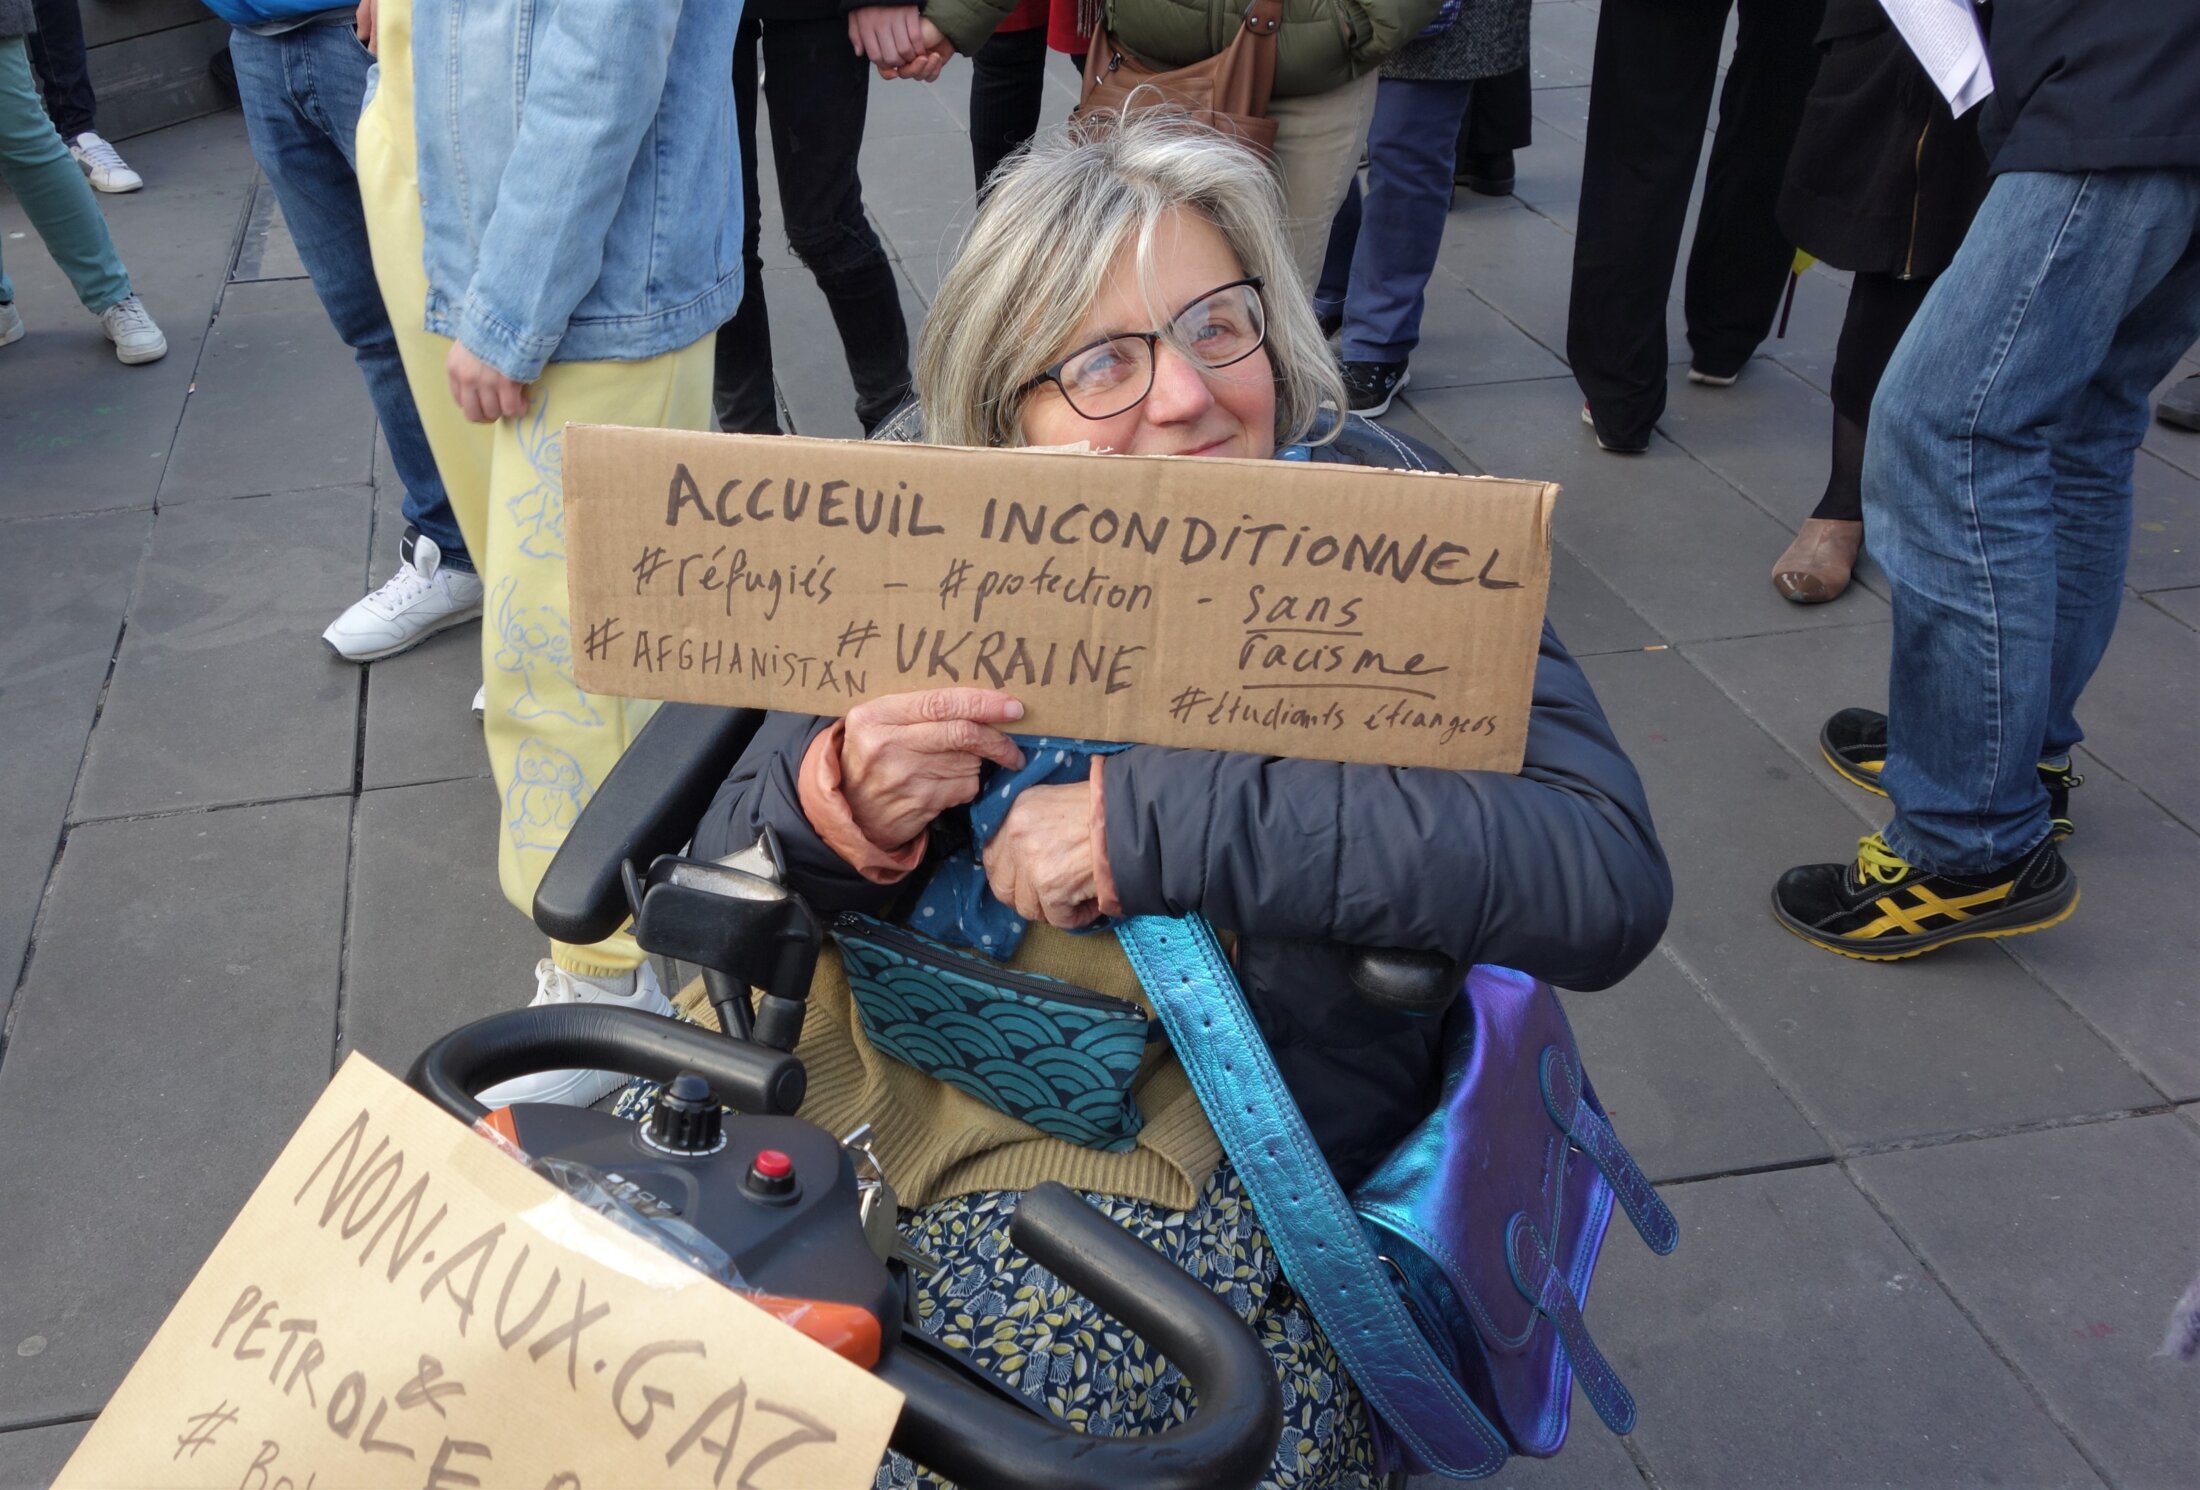 ACCUEUIL INCONDITIONNEL
#réfugiés - #protection - sans
racisme
#AFGHANISTAN #UKRAINE
#étudiants étrangers
NON.AUX.GAZ
&
PETROLE
#